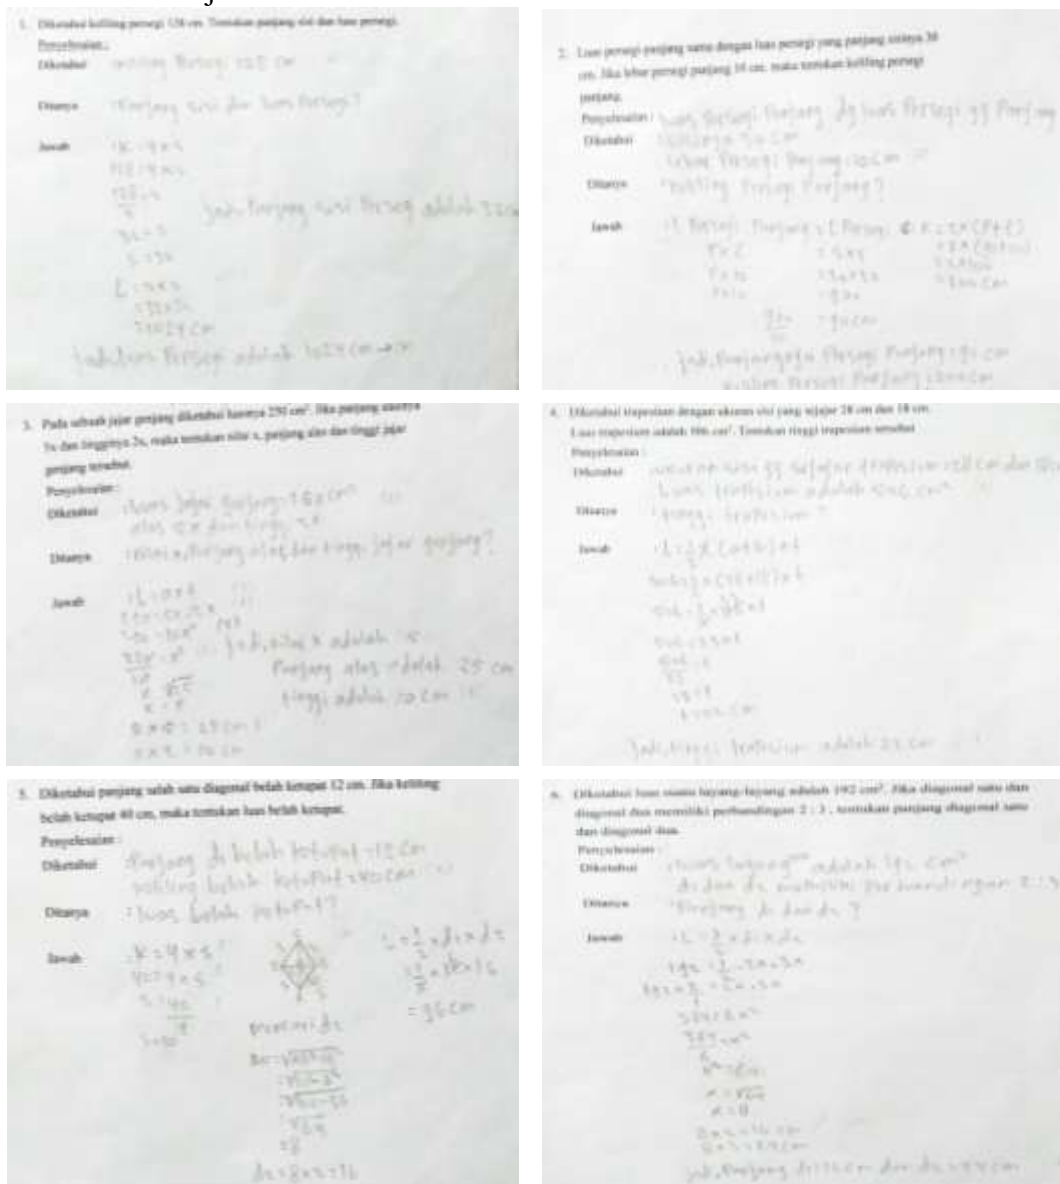 1. Diketahui keliling persegi 128 cm. Tentukan panjang sisi dan luas persegi.
Penyelesaian :
Diketahui : keliling Persegi 128 cm
Ditanya : Panjang sisi dan luas Persegi?
Jawab : K = 4 x s
128 = 4 x s
128 = s
4
32 = s
s = 32
Jadi, Panjang sisi Persegi adalah 32cm
L = s x s
= 32 x 32
= 1024 cm
Jadi luas Persegi adalah 1024 cm
2. Luas persegi panjang sama dengan luas persegi yang panjang sisinya 30
cm. Jika lebar persegi panjang 10 cm, maka tentukan keliling persegi
panjang.
Penyelesaian : luas Persegi Panjang dg luas Persegi yg Panjang
Diketahui sisinya 30 cm
lebar Persegi Panjang 10 cm
Ditanya : keliling Persegi Panjang?
Jawab : L Persegi Panjang = L Persegi K = 2 x (P+l)
P x l = s x s
P x 10 = 30 x 30
P x 10 = 900
= 90 cm
Jadi, Panjangnya Persegi Panjang 90 cm
keliling Persegi Panjang 200 cm
3. Pada sebuah jajar genjang diketahui luasnya 250 cm². Jika panjang alasnya
5x dan tingginya 2x, maka tentukan nilai x, panjang alas dan tinggi jajar
genjang tersebut.
Penyelesaian :
Diketahui : luas Jajar genjang = 250 cm²
alas 5x dan tinggi 2x
Ditanya : nilai x, Panjang alas dan tinggi jajar genjang?
Jawab : L = a x t
250 = 5x . 2x
250 = 10x²
250 = x²
10
Jadi, nilai x adalah 5
Panjang alas adalah 25 cm
tinggi adalah 10 cm
5 x 5 = 25 cm
5 x 2 = 10 cm
4. Diketahui trapesium dengan ukuran sisi yang sejajar 28 cm dan 18 cm.
Luas trapesium adalah 506 cm². Tentukan tinggi trapesium tersebut
Penyelesaian :
Diketahui : ukuran sisi yg sejajar trapesium 28 cm dan 18 cm
luas trapesium adalah 506 cm²
Ditanya : tinggi trapesium ?
Jawab : L = 1/2 x (a+b) x t
506 = 1/2 x (28+18) x t
506 = 23 x t
506 = t
23
t = 22 cm
Jadi, tinggi trapesium adalah 22 cm
5. Diketahui panjang salah satu diagonal belah ketupat 12 cm. Jika keliling
belah ketupat 40 cm, maka tentukan luas belah ketupat.
Penyelesaian :
Diketahui : Panjang d1 belah ketupat = 12 cm
keliling belah ketupat = 40 cm
Ditanya : luas belah ketupat?
Jawab : K = 4 x s
40 = 4 x s
s = 40
4
s = 10
L = 1/2 x d1 x d2
= 1/2 x 12 x 16
= 96 cm
mencari d2
= √64
= 8
d2 = 8 x 2 = 16
6. Diketahui luas suatu layang-layang adalah 192 cm². Jika diagonal satu dan
diagonal dua memiliki perbandingan 2 : 3 , tentukan panjang diagonal satu
dan diagonal dua.
Penyelesaian :
Diketahui : luas layang² adalah 192 cm²
d1 dan d2 memiliki perbandingan 2 : 3
Ditanya : Panjang d1 dan d2 ?
Jawab : L = 1/2 x d1 x d2
192 = 1/2 . 2x . 3x
384 = 6x²
384 = x²
6
x² = 64
x = √64
x = 8
8 x 2 = 16 cm
8 x 3 = 24 cm
Jadi, Panjang d1 = 16 cm dan d2 = 24 cm